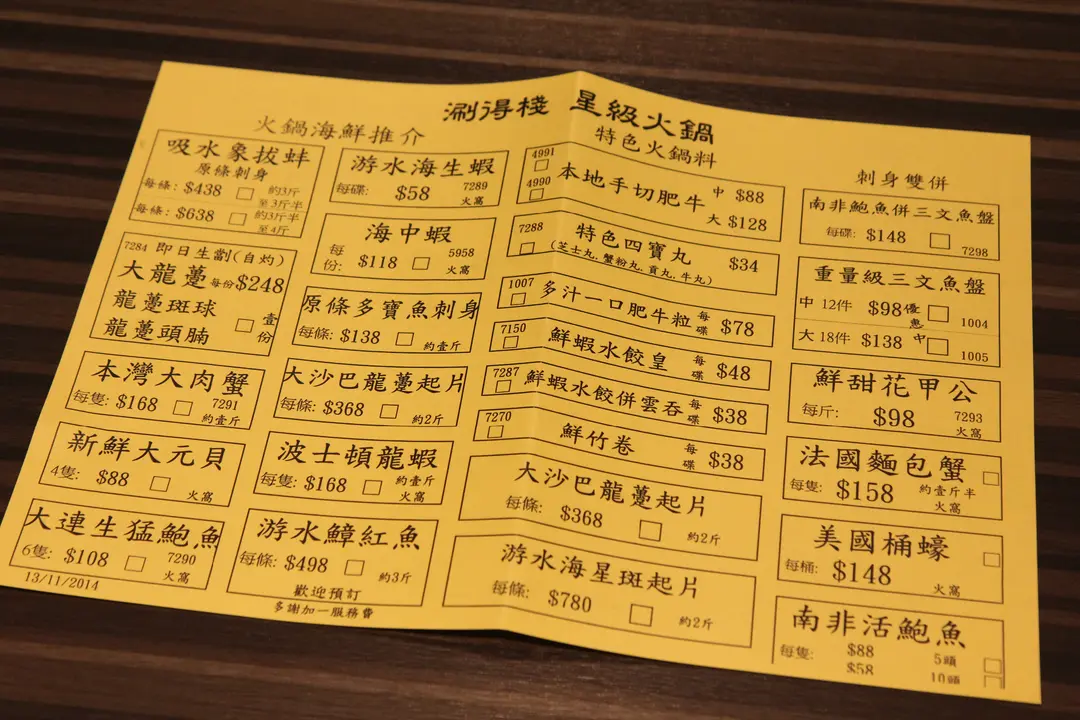 涮得棧 星級火鍋
火鍋海鮮推介
吸水象拔蚌
原條刺身
每條: $438 約3斤至3斤半
每條: $638 約3斤半至4斤
7284 即日生劏(自灼)
大龍躉 每份$248
龍躉斑球
龍躉頭腩 壹份
本灣大肉蟹
每隻: $168 7291
約壹斤
新鮮大元貝
4隻: $88 火窩
大連生猛鮑魚
6隻: $108 7290
火窩
13/11/2014
游水海生蝦
每碟: $58 7289
火窩
海中蝦
每份: $118 5958
火窩
原條多寶魚刺身
每條: $138 約壹斤
大沙巴龍躉起片
每條: $368 約2斤
波士頓龍蝦
每隻: $168 約壹斤
火窩
游水鱆紅魚
每條: $498 約3斤
歡迎預訂
多謝加一服務費
特色火鍋料
4991
4990
本地手切肥牛 中 $88
大 $128
7288
特色四寶丸 $34
(芝士丸,蟹粉丸,貢丸,牛丸)
1007 多汁一口肥牛粒 每碟 $78
7150 鮮蝦水餃皇 每碟 $48
7287 鮮蝦水餃併雲吞 每碟 $38
7270 鮮竹卷 每碟 $38
大沙巴龍躉起片
每條: $368 約2斤
游水海星斑起片
每條: $780 約2斤
刺身雙併
南非鮑魚併三文魚盤
每碟: $148 7298
重量級三文魚盤
中 12件 $98優惠 1004
大 18件 $138 中 1005
鮮甜花甲公
每斤: $98 7293
火窩
法國麵包蟹
每隻: $158 約壹斤半
火窩
美國桶蠔
每桶: $148 火窩
南非活鮑魚
每隻: $88 5頭
$58 10頭